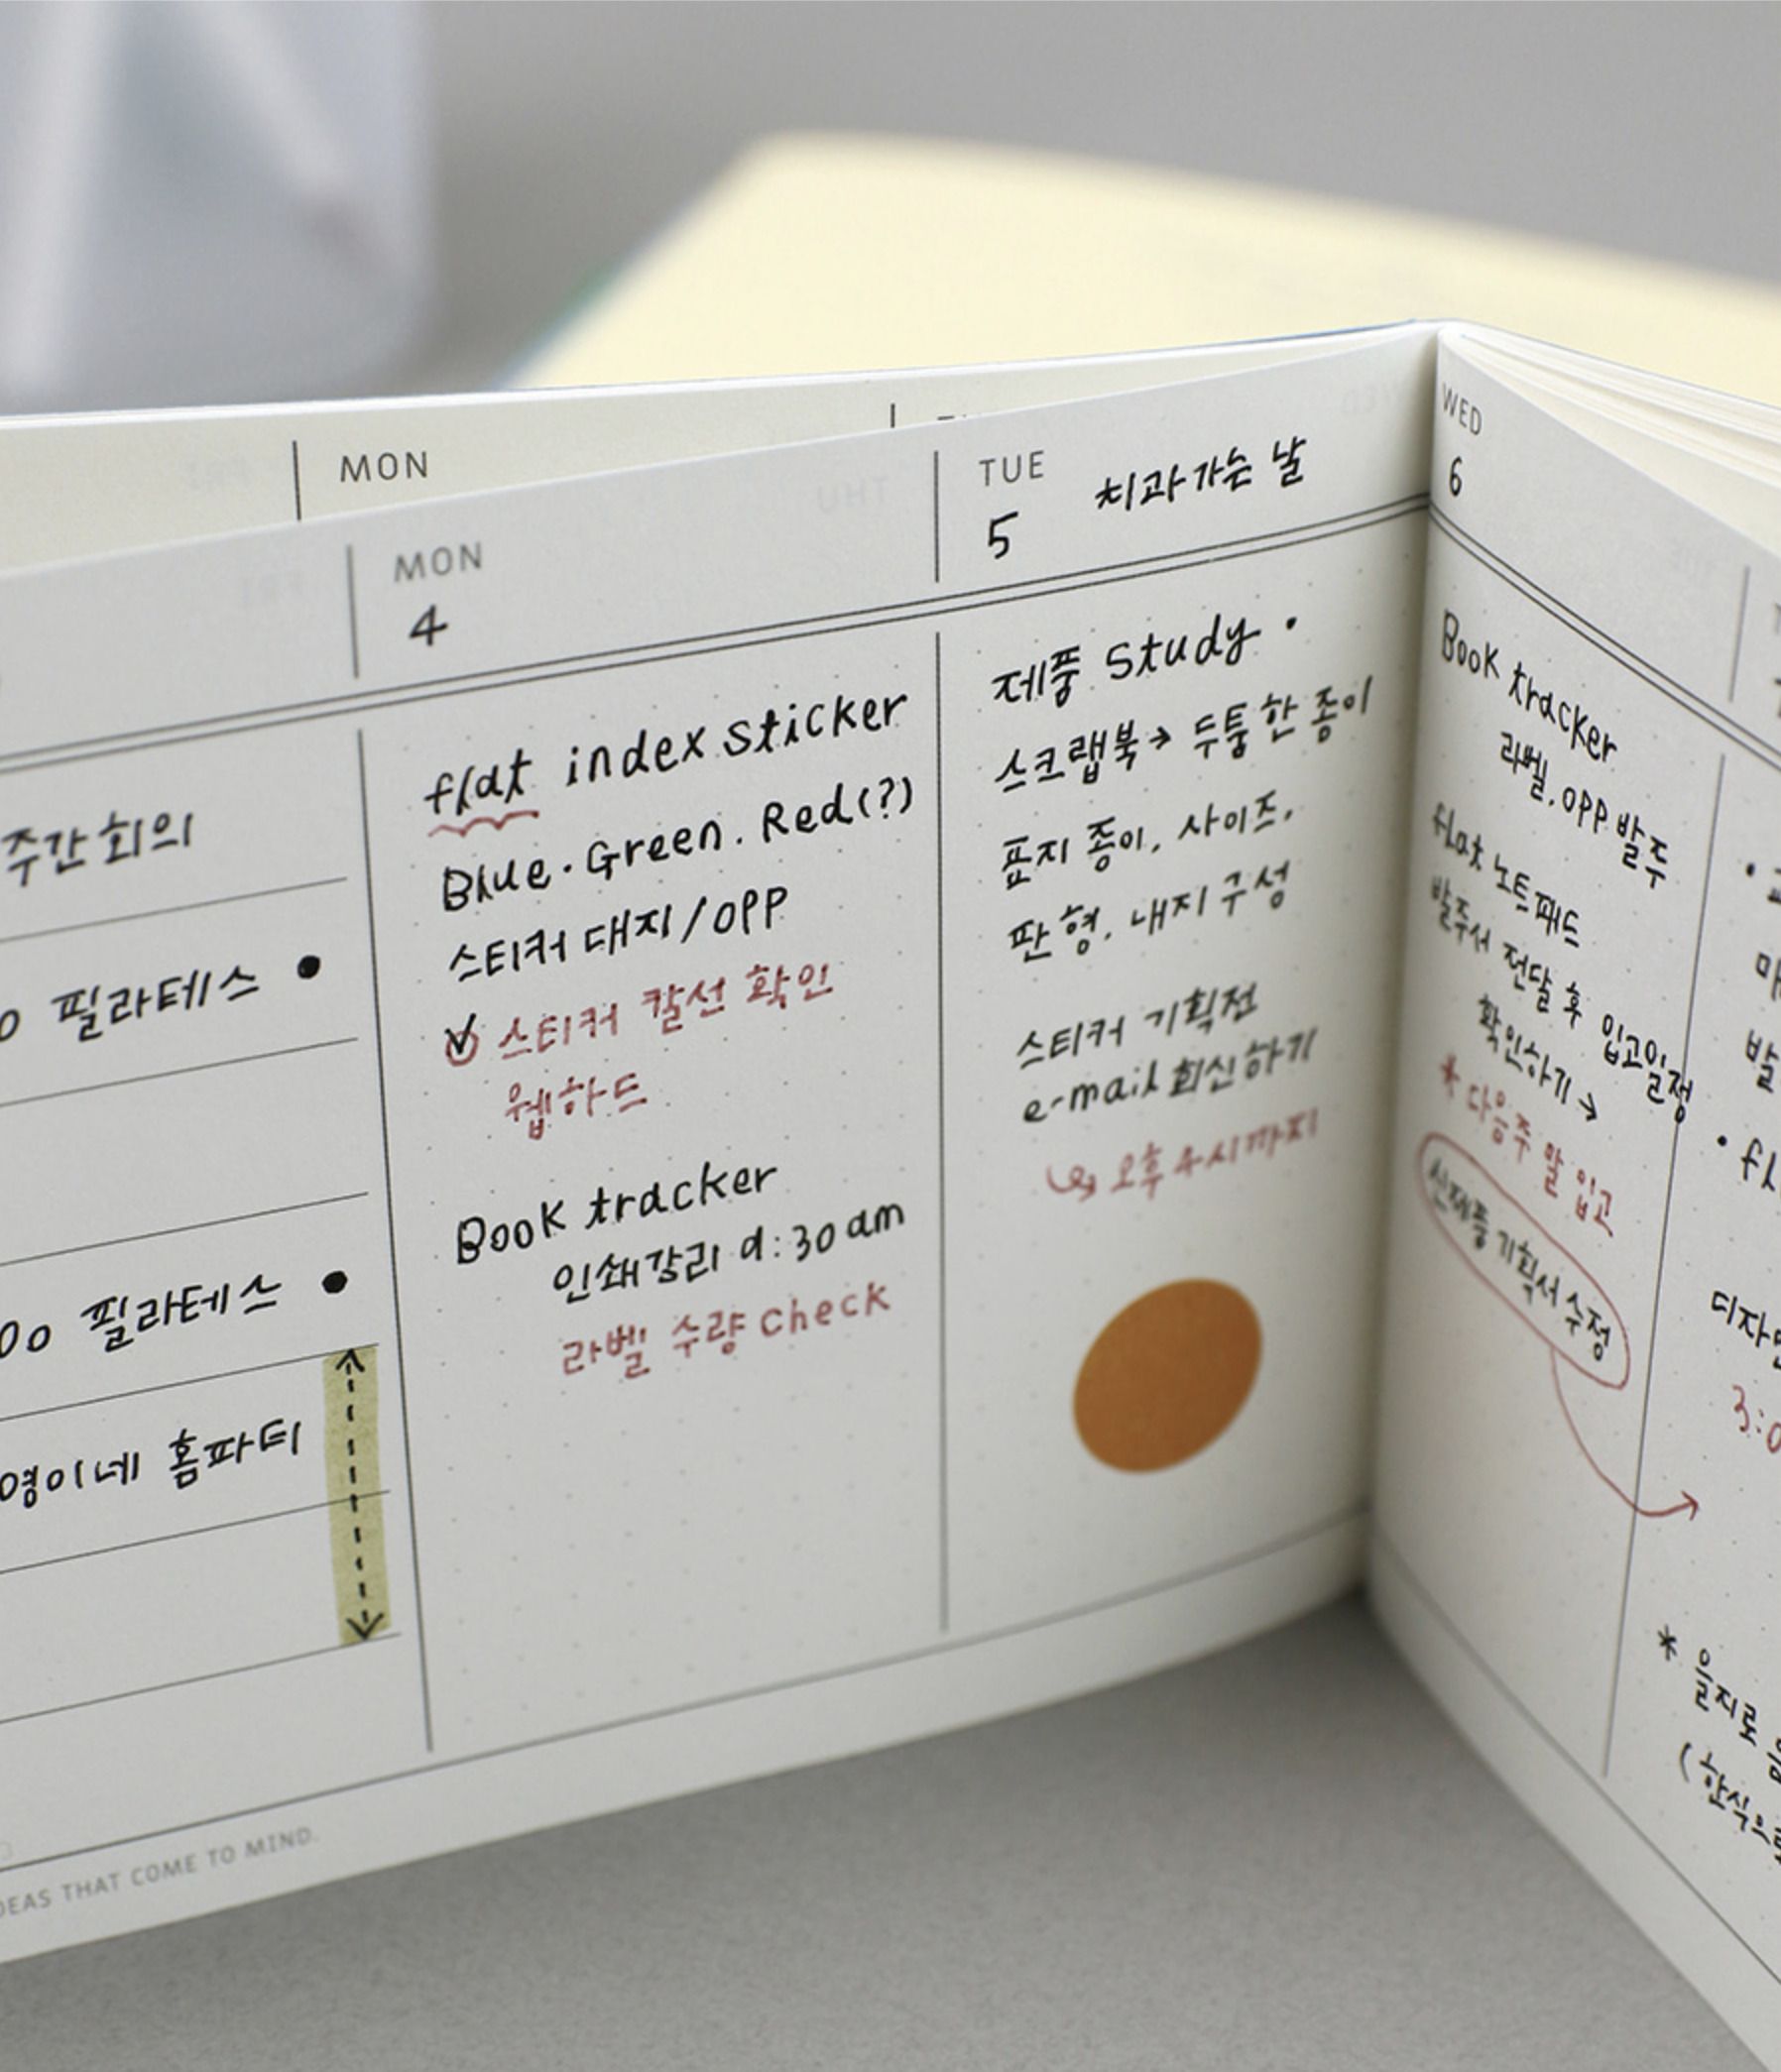 MON
MON
4
TUE
5 치과가는 날
WED
6
주간회의
필라테스 •
필라테스 •
영이네 홈파티
flat index sticker
Blue. Green. Red(?)
스티커 대지/OPP
스티커 칼선 확인
웹하드
Book tracker
인쇄감리 9:30am
라벨 수량 check
제품 study •
스크랩북→ 두툼한 종이
표지 종이, 사이즈,
판형, 내지 구성
스티커 기획전
e-mail 회신하기
↳ 오후 4시까지
Book tracker
라벨, OPP 발주
flat 노트패드
발주서 전달 후 입고일정
확인하기 →
* 다음주 말 입고
신제품 기획서 수정
3:0
* 을지로
(한식으로
THAT COME TO MIND.